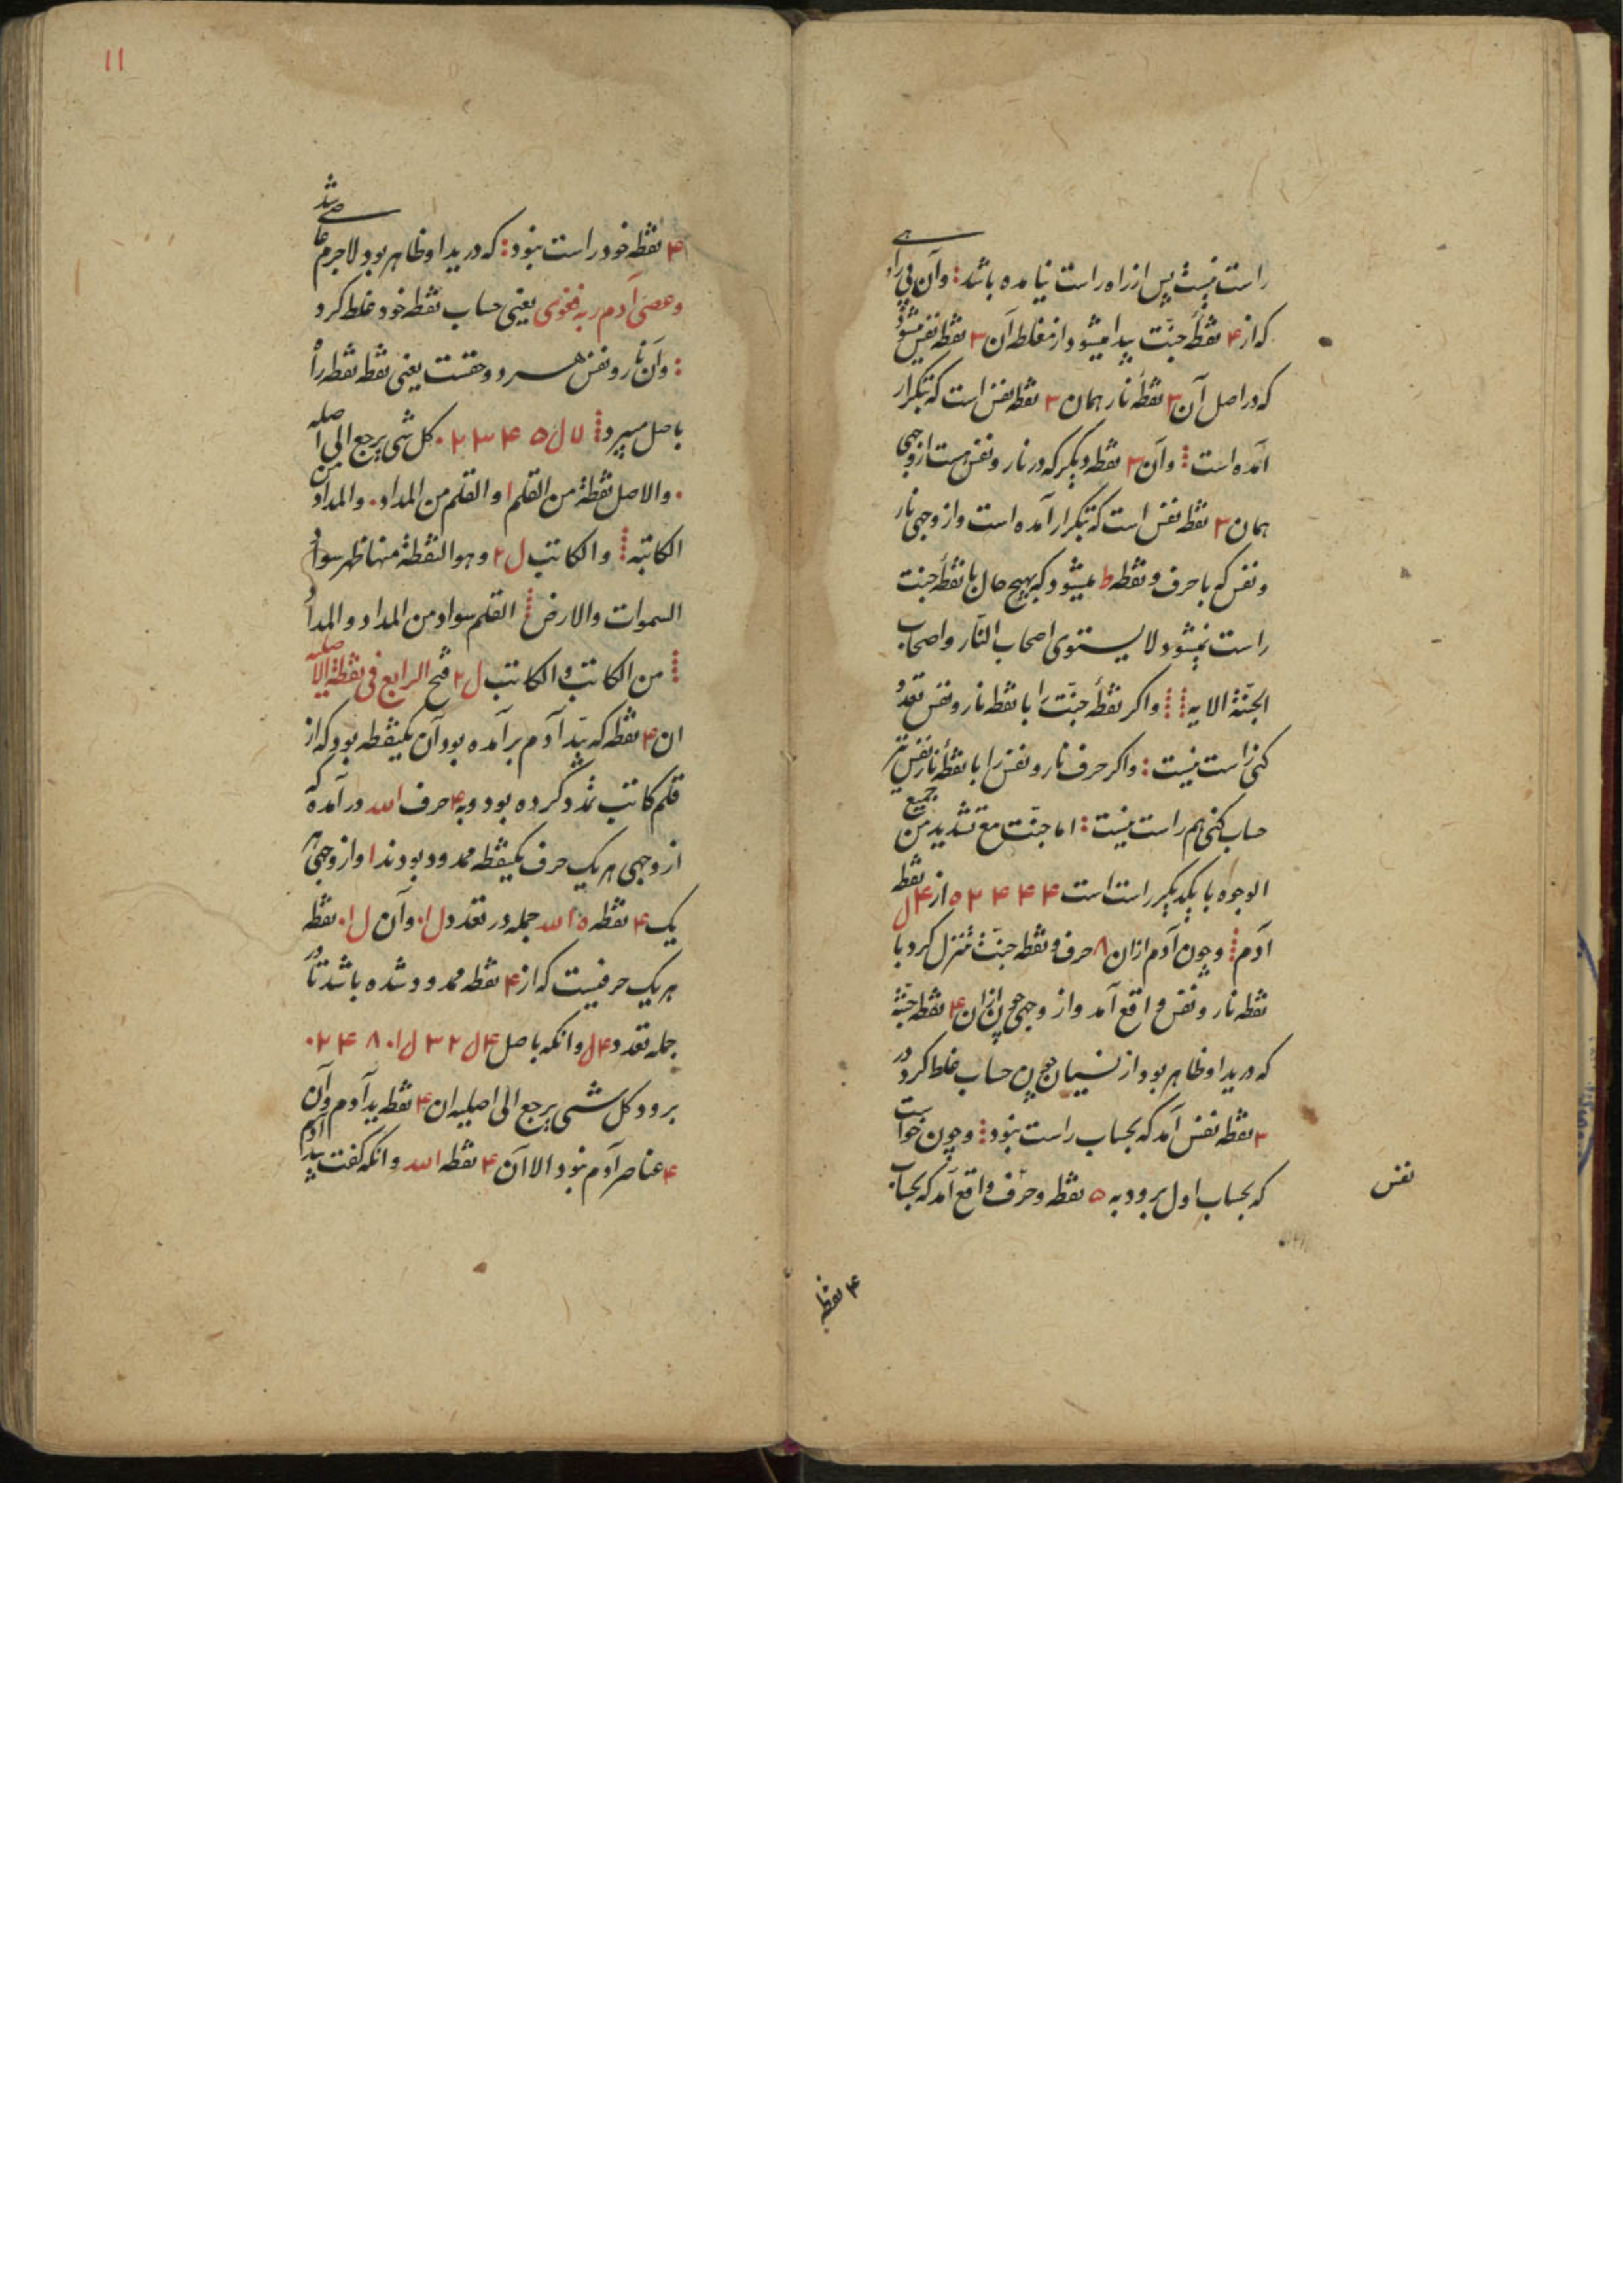 راست نیست پس از راه راست نیامده باشد: وآن بی راهی
که از ۴ نقطهٔ جنّت پیدا میشود از مغلطه آن ۳ نقطه نفس میشود
که در اصل آن ۳ نقطهٔ نار همان ۳ نقطه نفس است که بتکرار
آمده است وآن ۳ نقطه دیگر که در نار و نفس هست از وجهی
همان ۳ نقطه نفس است که بتکرار آمده است و از وجهی نار
و نفس که با حرف و نقطه ط میشود که بهیچ حال با نقطهٔ جنت
راست نمیشود لا یستوی اصحاب النّار و اصحاب
الجنّة الایه واکر نقطهٔ جنّت را با نقطه نار و نفس تعدد
کنی راست نیست: واکر حرف نار و نفس را با نقطهٔ نار نفس نیز
حساب کنی هم راست نیست: اما جنّت مع تشدید من جمیع
الوجوه با یکدیگیر راست است ۴ ۴ ۴ ۲ ۵ از ۴ ل نقطه
آدم وچون آدم ازان ۸ حرف و نقطه جنّت تنزل کرد با
نقطه نار و نفس واقع آمد واز وجهی چون ازان ۴ نقطه جنّة
که در ید او ظاهر بود از نسیان چون حساب غلط کرد در
۳ نقطه نفس آمد که بحساب راست نبود وچون خواست
که بحساب اول برود به ۵ نقطه وحرف واقع آمد که بحساب
نفس
۴ نقطه
۱۱
۴ نقطه خود راست نبود: که در ید او ظاهر بود لاجرم عاصی شد
وعصی آدم ربه فغوی یعنی حساب نقطه خود غلط کرد
: وآن نار و نفس هر دو حقست یعنی نقطه نقطه را
باصل میبرد ۷ ل ۵ ۴ ۳ ۲ ۰ کل شی یرجع الی اصله
۰ والاصل نقطة من القلم ا والقلم من المداد ۰ والمداد من
الکاتبه والکاتب ل ۲ وهو النقطة منها ظهر سواد
السموات والارض القلم سواد من المداد والمداد
من الکاتب والکاتب ل ۲ فتح الرابع فی نقطة الاصلیه
ان ۴ نقطه که بید آدم برآمده بود آن یکنقطه بود که از
قلم کاتب تمدد کرده بود وبه ۴ حرف الله درآمده که
از وجهی هر یک حرف یکنقطه ممدود بودند ا واز وجهی هر
یک ۴ نقطه ۵ ا الله جمله در تعدد ل ۱۰ وآن ل ۱۰ نقطه
هر یک حرفیست که از ۴ نقطه ممدود شده باشد تا در
جمله تعدد ۴ ل وانکه باصل ۴ ل ۲ ۳ ل ۱۰ ۸ ۴ ۲ ۰
برود کل شی یرجع الی اصلیه ان ۴ نقطه ید آدم وآن
۴ عناصر آدم نبود الا آن ۴ نقطه الله وانکه کفت بید آدم